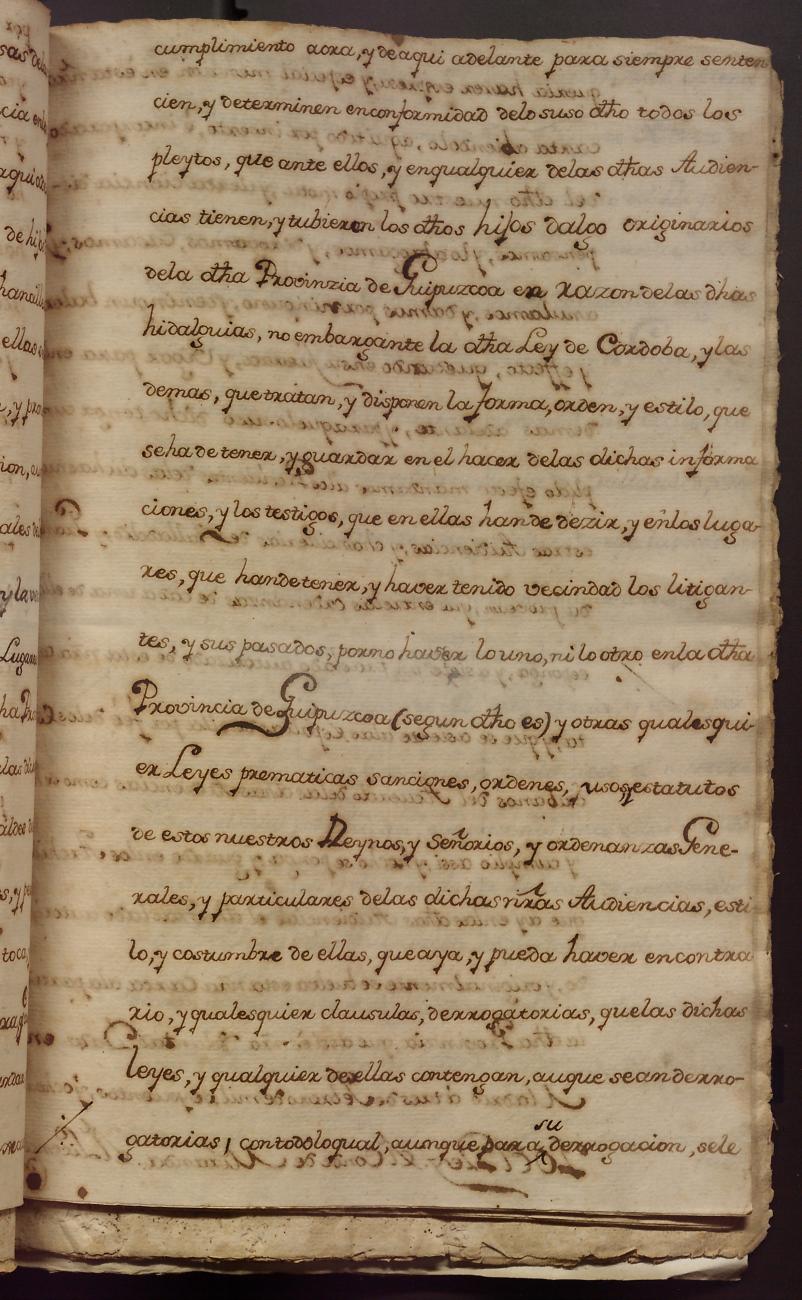 cumplimiento aora, y de aqui adelante para siempre senten
cien, y determinen enconformidad delo suso dho todos los
pleytos, que ante ellos, y enqualquier delas dhas Audien-
cias tienen, y tubieren los dhos hijos dalgo originarios
dela dha Provinzia de Guipuzcoa en razon delas dhas
hidalguias, no embargante la dha Ley de Cordoba, y las
demas, que tratan, y disponen la forma, orden, y estilo, que
seha de tener, y guardar en el hacer delas dichas informa
ciones, y los testigos, que en ellas han de dezir, y enlos luga-
res, que handetener, y haver tenido vecindad los litigan-
tes, y sus pasados, porno haver lo uno, ni lo otro enla dha
Provincia de Guipuzcoa (segun dho es) y otras qualesqui-
er Leyes prematicas sanciones, ordenes, usos, y estatutos
de estos nuestros Reynos, y Señorios, y ordenanzas Gene-
rales, y particulares delas dichas nras Audiencias, esti
lo, y costumbre de ellas, que aya, y pueda haver en contra
rio, y qualesquier clausulas, derrogatorias, quelas dichas
leyes, y qualquier de ellas contengan, auque sean derro-
gatorias, contodoloqual, aunque para su derrogacion, sele